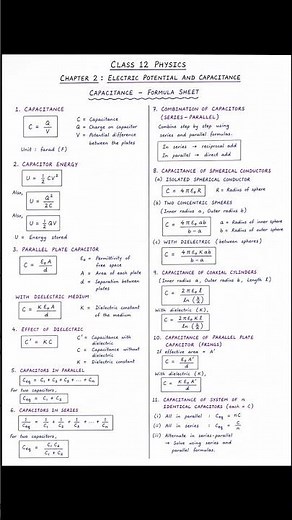 CLASS 12 PHYSICS
CHAPTER 2 : ELECTRIC POTENTIAL AND CAPACITANCE
CAPACITANCE – FORMULA SHEET
1. CAPACITANCE
C = Q/V
C = Capacitance
Q = Charge on capacitor
V = Potential difference
between the plates
Unit : farad (F)
2. CAPACITOR ENERGY
U = 1/2 CV²
Also,
U = Q²/2C
Also,
U = 1/2 QV
U = Energy stored
3. PARALLEL PLATE CAPACITOR
C = ε₀A/d
ε₀ = Permittivity of
free space
A = Area of each plate
d = Separation between
plates
WITH DIELECTRIC MEDIUM
C = Kε₀A/d
K = Dielectric constant
of the medium
4. EFFECT OF DIELECTRIC
C' = KC
C' = Capacitance with
dielectric
C = Capacitance without
dielectric
K = Dielectric constant
5. CAPACITORS IN PARALLEL
Ceq = C₁ + C₂ + C₃ + ... + Cn
For two capacitors,
Ceq = C₁ + C₂
6. CAPACITORS IN SERIES
1/Ceq = 1/C₁ + 1/C₂ + 1/C₃ + ... + 1/Cn
For two capacitors,
Ceq = C₁C₂/C₁ + C₂
7. COMBINATION OF CAPACITORS
(SERIES-PARALLEL)
Combine step by step using
series and parallel formulas.
In series → reciprocal add
In parallel → direct add
8. CAPACITANCE OF SPHERICAL CONDUCTORS
(a) ISOLATED SPHERICAL CONDUCTOR
C = 4πε₀R
R = Radius of sphere
(b) TWO CONCENTRIC SPHERES
(Inner radius a, Outer radius b)
C = 4πε₀ab/b-a
a = Radius of inner sphere
b = Radius of outer sphere
(c) WITH DIELECTRIC (between spheres)
C = 4πε₀Kab/b-a
9. CAPACITANCE OF COAXIAL CYLINDERS
(Inner radius a, Outer radius b, Length l)
C = 2πε₀l/ln(b/a)
With dielectric (K),
C = 2πε₀Kl/ln(b/a)
10. CAPACITANCE OF PARALLEL PLATE
CAPACITOR (FRINGE)
If effective area = A'
C = ε₀A'/d
With dielectric (K),
C = Kε₀A'/d
11. CAPACITANCE OF SYSTEM OF n
IDENTICAL CAPACITORS (each = C)
(i) All in parallel : Ceq = nC
(ii) All in series : Ceq = C/n
(iii) Alternate in series-parallel
→ Solve using series and
parallel formulas.